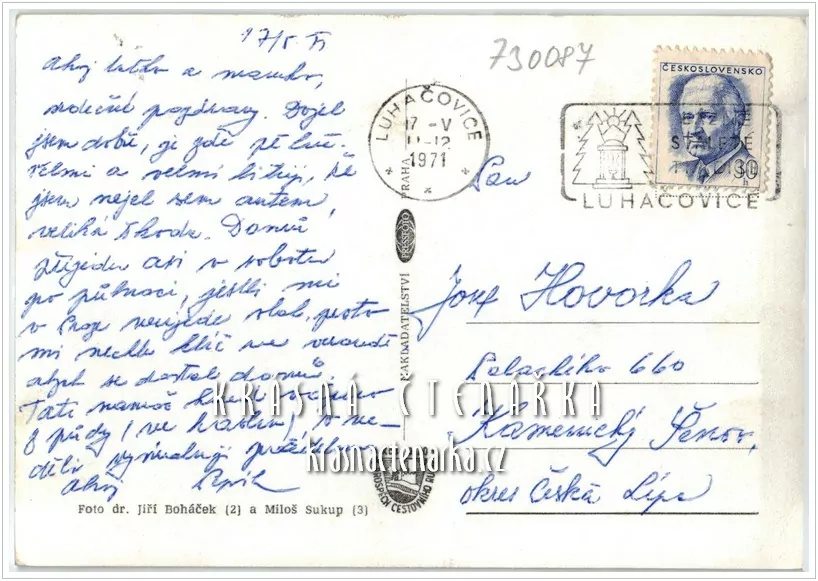 17/5 71
Ahoj taťko a mamko,
srdečné pozdravy. Dojel
jsem dobře, je zde pěkně.
velmi a velmi lituji, že
jsem nejel sem autem,
veliká škoda. Domů
přijedu asi v sobotu
po půlnoci, jestli mi
v Praze neujede vlak, proto
mi nechte klíč na verandě
abych se dostal domů.
Tati namoč
z půdy (ve
děli
Ahoj Pepík
Foto dr. Jiří Boháček (2) a Miloš Sukup (3)
730087
LUHAČOVICE
17 -V
11-12
1971
ČESKOSLOVENSKO
30 h
LUHAČOVICE
PRAHA
PRESSFOTO
NAKLADATELSTVÍ
Pan
Josef Hovorka
Palackého 660
Kamenický Šenov,
okres Česká Lípa
KRÁSNÁ ČTENÁŘKA
krasnactenarka.cz